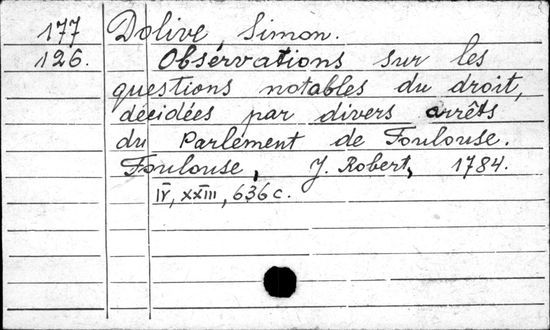 177 Dolive, Simon.
126. Obsérvations sur les
questions notables du droit,
décidées par divers arrêts
du Parlement de Toulouse.
Toulouse, J. Robert, 1784.
IV, XXIII, 636 c.